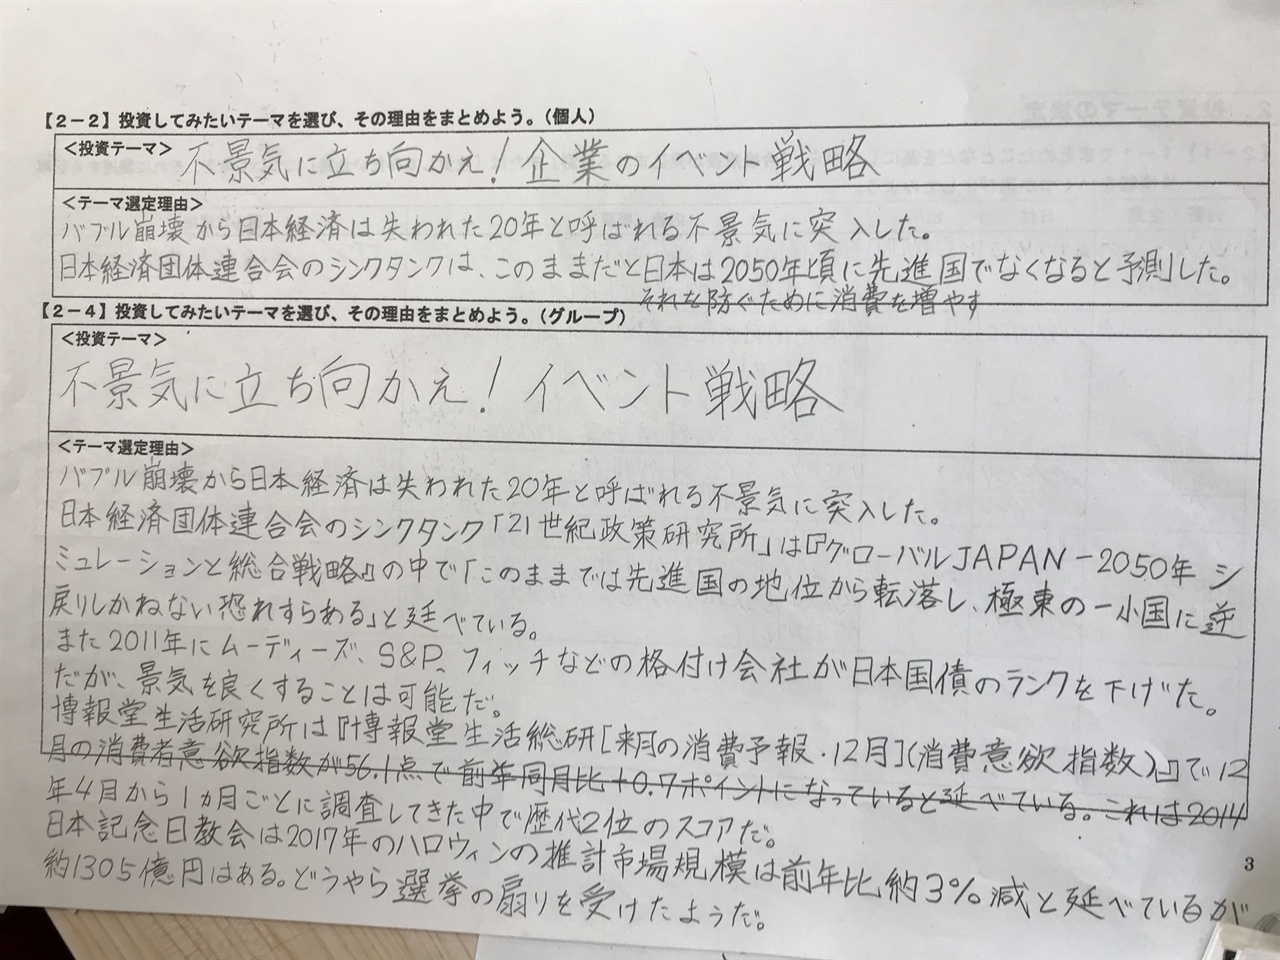 【2－2】投資してみたいテーマを選び、その理由をまとめよう。（個人）
＜投資テーマ＞ 不景気に立ち向かえ！企業のイベント戦略
＜テーマ選定理由＞
バブル崩壊から日本経済は失われた20年と呼ばれる不景気に突入した。
日本経済団体連合会のシンクタンクは、このままだと日本は2050年頃に先進国でなくなると予測した。
それを防ぐために消費を増やす
【2－4】投資してみたいテーマを選び、その理由をまとめよう。（グループ）
＜投資テーマ＞
不景気に立ち向かえ！イベント戦略
＜テーマ選定理由＞
バブル崩壊から日本経済は失われた20年と呼ばれる不景気に突入した。
日本経済団体連合会のシンクタンク「21世紀政策研究所」は『グローバルJAPAN－2050年 シ
ミュレーションと総合戦略』の中で「このままでは先進国の地位から転落し、極東の一小国に逆
戻りしかねない恐れすらある」と延べている。
また2011年にムーディーズ、S&P、フィッチなどの格付け会社が日本国債のランクを下げた。
だが、景気を良くすることは可能だ。
博報堂生活研究所は『博報堂生活総研[来月の消費予報・12月](消費意欲指数)』で12
月の消費者意欲指数が56.1点で前年同月比+0.7ポイントになっていると延べている。これは2014
年4月から1ヵ月ごとに調査してきた中で歴代2位のスコアだ。
日本記念日教会は2017年のハロウィンの推計市場規模は前年比約3%減と延べているが
約1305億円はある。どうやら選挙の扇りを受けたようだ。
3